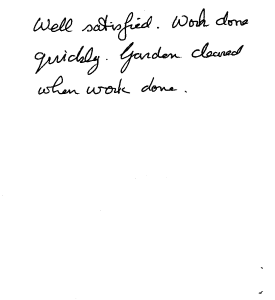 Well satisfied. Work done
quickly. Garden cleared
when work done.